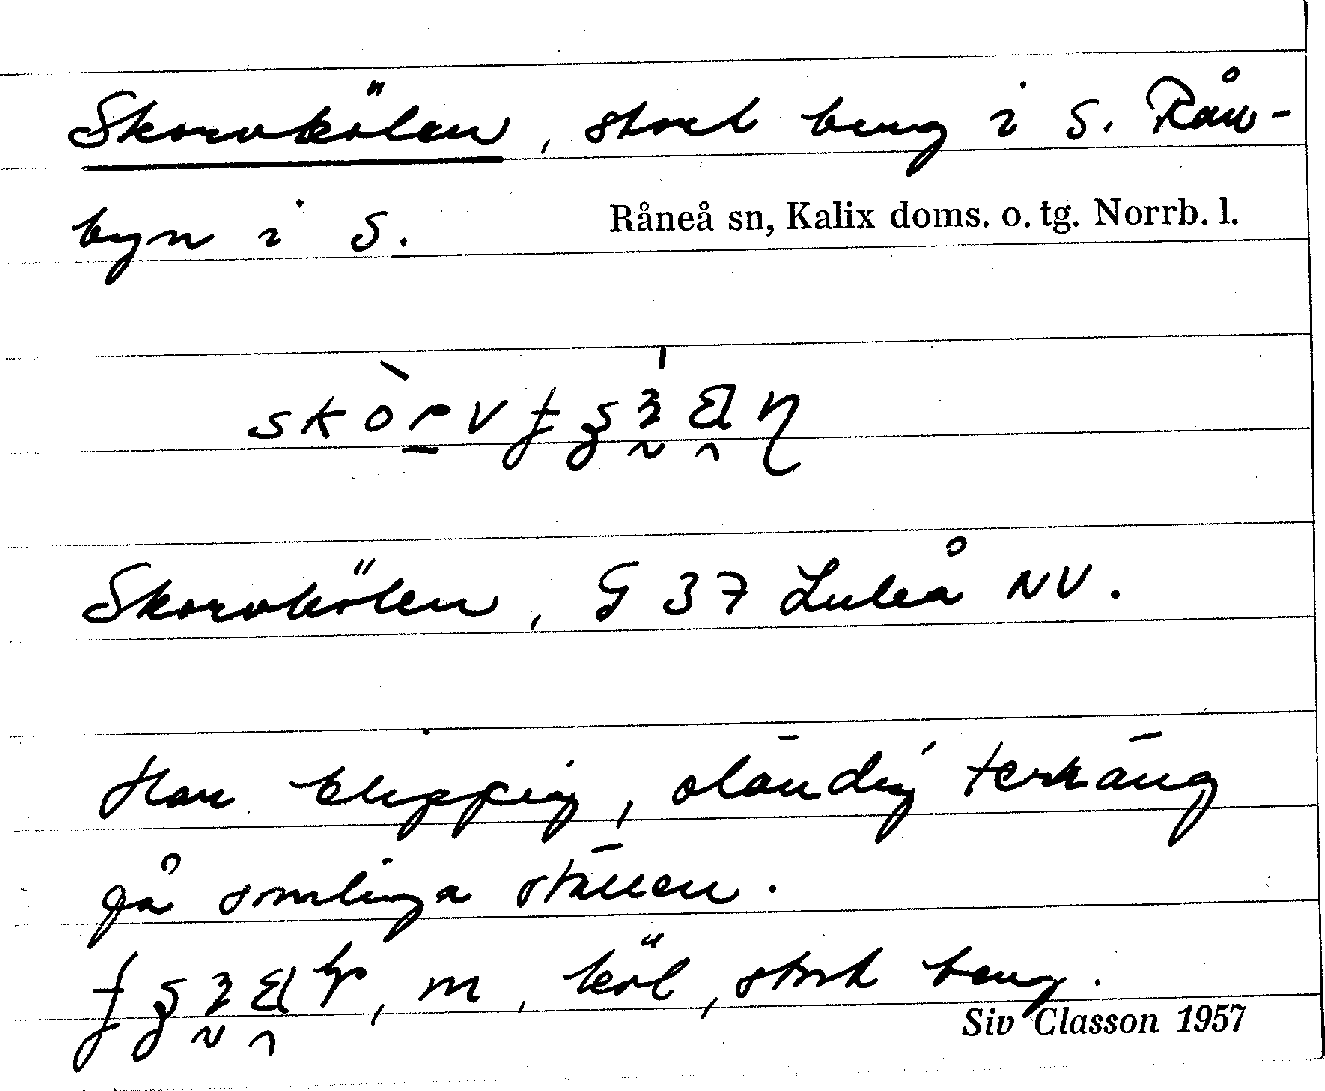 Skorvkölen, stort berg i S. Rån-
byn i S. Råneå sn, Kalix doms. o. tg. Norrb. l.
Skorvkölen, G 37 Luleå NV.
Har klippig, oländig terräng
på somliga ställen.
m, köl, stort berg.
Siv Classon 1957